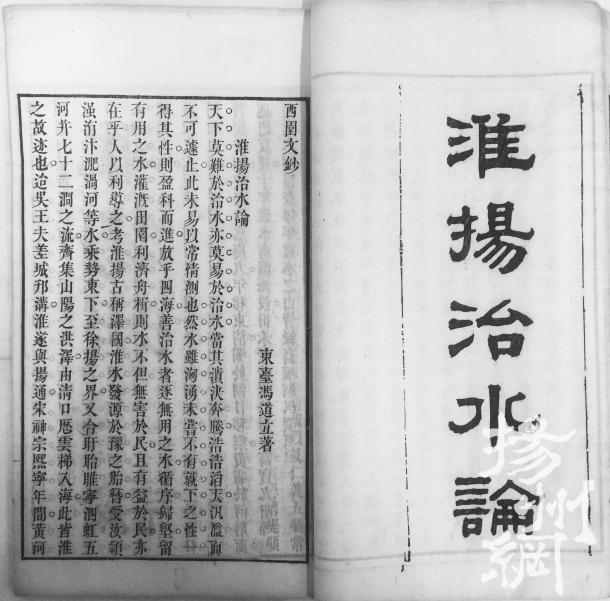 淮揚治水論
揚州網
西園文鈔
淮揚治水論
東臺馮道立著
天下莫難於治水亦莫易於治水當其潰決奔騰浩浩滔天汎濫而
不可遽止此未易以常情測也然水雖洶湧未嘗不有就下之性一
得其性則盈科而進放乎四海善治水者逐無用之水循序歸壑留
有用之水灌漑田園利濟舟楫則水不但無害於民且有益於民亦
在乎人以利導之考淮揚古稱澤國淮水發源於豫之胎簪受汝潁
洧汴淝渦河等水乘勢東下至徐揚之界又合盱眙睢寧泗虹五
河幷七十二澗之流齊集山陽之洪澤由清口歷雲梯入海此皆淮
之故迹也迨吳王夫差城邗溝淮遂與揚通宋神宗熙寧年間黃河